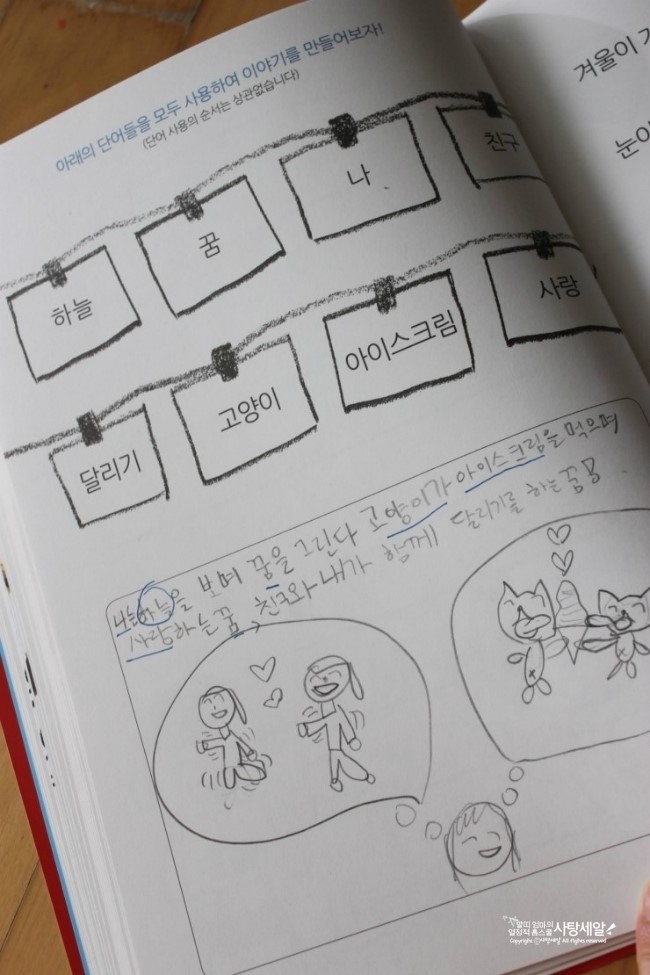 아래의 단어들을 모두 사용하여 이야기를 만들어보자!
(단어 사용의 순서는 상관없습니다)
하늘
꿈
나
친구
달리기
고양이
아이스크림
사랑
나는 하늘을 보며 꿈을 그린다 고양이가 아이스크림을 먹으며
사랑하는 꿈 친구와 내가 함께 달리기를 하는 꿈을
겨울이
눈이
열정적 홈스쿨 사탕세알
Copyright ⓒ사탕세알 All rights reserved